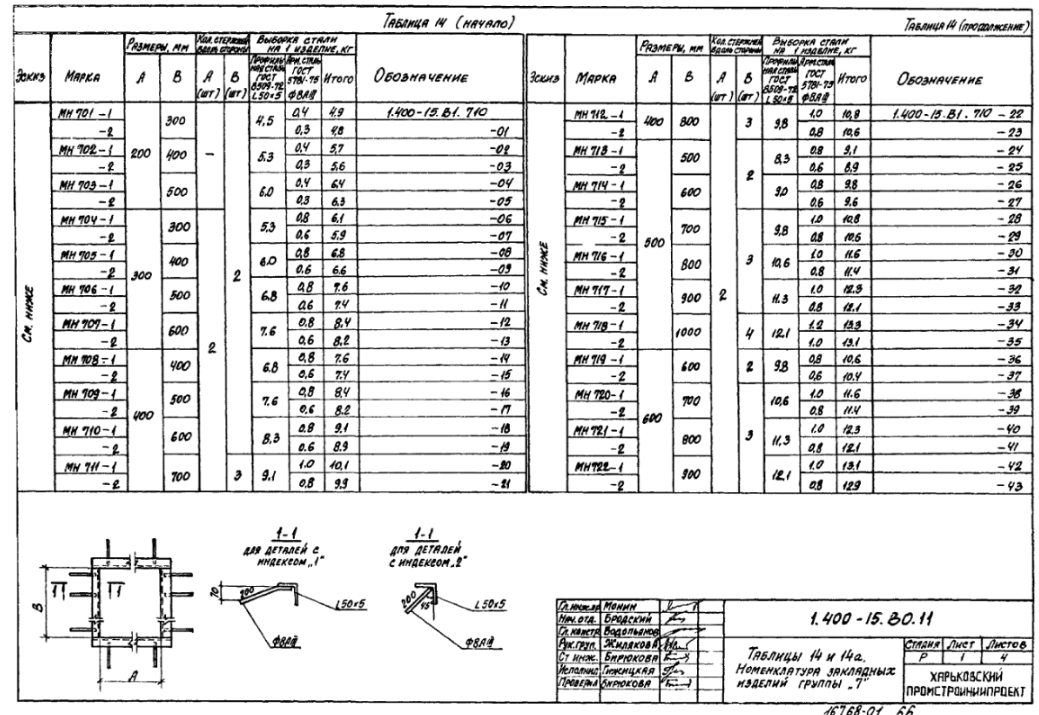 Таблица 14 (начало)
Эскиз Марка Размеры, мм Кол. стержней вдоль стороны Выборка стали на 1 изделие, кг Обозначение
А В А (шт) В (шт) Профильная сталь ГОСТ 8509-72 L50×5 Арм. сталь ГОСТ 5781-75 Ф8АIII Итого
См. ниже
МН 701-1 200 300 — 2 4.5 0,4 4,9 1.400-15.В1.710
-2 0,3 4,8 -01
МН 702-1 400 5.3 0,4 5,7 -02
-2 0,3 5,6 -03
МН 703-1 500 6.0 0,4 6,4 -04
-2 0,3 6,3 -05
МН 704-1 300 300 2 5.3 0,8 6,1 -06
-2 0,6 5,9 -07
МН 705-1 400 6.0 0,8 6,8 -08
-2 0,6 6,6 -09
МН 706-1 500 6.8 0,8 7,6 -10
-2 0,6 7,4 -11
МН 707-1 600 7.6 0,8 8,4 -12
-2 0,6 8,2 -13
МН 708-1 400 400 6.8 0,8 7,6 -14
-2 0,6 7,4 -15
МН 709-1 500 7.6 0,8 8,4 -16
-2 0,6 8,2 -17
МН 710-1 600 8,3 0,8 9,1 -18
-2 0,6 8,9 -19
МН 711-1 700 3 9,1 1.0 10,1 -20
-2 0,8 9,9 -21
Таблица 14 (продолжение)
Эскиз Марка Размеры, мм Кол. стержней вдоль стороны Выборка стали на 1 изделие, кг Обозначение
А В А (шт) В (шт) Профильная сталь ГОСТ 8509-72 L50×5 Арм. сталь ГОСТ 5781-75 Ф8АIII Итого
См. ниже
МН 712-1 400 800 2 3 9,8 1.0 10,8 1.400-15.В1.710-22
-2 0,8 10,6 -23
МН 713-1 500 500 2 8,3 0,8 9,1 -24
-2 0,6 8,9 -25
МН 714-1 600 9,0 0,8 9,8 -26
-2 0,6 9,6 -27
МН 715-1 700 3 9,8 1.0 10,8 -28
-2 0,8 10,6 -29
МН 716-1 800 10,6 1.0 11,6 -30
-2 0,8 11,4 -31
МН 717-1 900 11.3 1.0 12,3 -32
-2 0,8 12,1 -33
МН 718-1 1000 4 12.1 1.2 13,3 -34
-2 1.0 13,1 -35
МН 719-1 600 600 2 9,8 0,8 10,6 -36
-2 0,6 10,4 -37
МН 720-1 700 3 10,6 1.0 11,6 -38
-2 0,8 11,4 -39
МН 721-1 800 11,3 1.0 12,3 -40
-2 0,8 12,1 -41
МН 722-1 900 12,1 1.0 13,1 -42
-2 0,8 12,9 -43
В
1 1
А
1-1
для деталей с
индексом „1"
70 200 L50×5
Ф8АIII
1-1
для деталей
с индексом „2"
200 45 L50×5
Ф8АIII
Гл. инж. пр Монин
Нач. отд. Бродский
Гл. констр Водопьянов
Рук. груп. Жилякова
Ст. инж. Бирюкова
Исполнил
Проверил Бирюкова
1.400-15.В0.11
Таблицы 14 и 14а.
Номенклатура закладных
изделий группы „7"
Стадия Лист Листов
Р 1 4
Харьковский
Промстройниипроект
16768-01 66